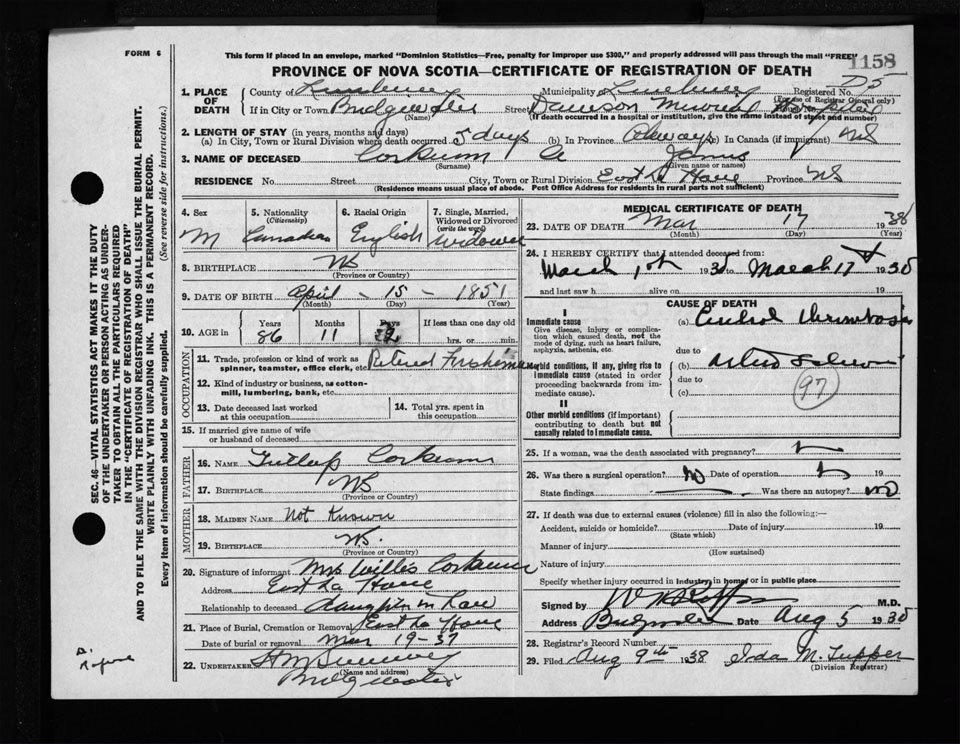 FORM 6
This form if placed in an envelope, marked "Dominion Statistics—Free, penalty for improper use $300," and properly addressed will pass through the mail "FREE"
1158
PROVINCE OF NOVA SCOTIA—CERTIFICATE OF REGISTRATION OF DEATH
D5
1. PLACE OF DEATH
County of Lunenburg Municipality Lunenburg Registered No.
(For use of Registrar General only)
If in City or Town Bridgewater Street Dawson Memorial Hospital
(Name) (If death occurred in a hospital or institution, give the name instead of street and number)
2. LENGTH OF STAY (in years, months and days)
(a) In City, Town or Rural Division where death occurred 5 days (b) In Province Always (c) In Canada (if immigrant) NS
3. NAME OF DECEASED Corkum James
(Surname) (Given name or names)
RESIDENCE No. Street City, Town or Rural Division East La Have Province NS
(Residence means usual place of abode. Post Office Address for residents in rural parts not sufficient)
4. Sex M
5. Nationality (Citizenship) Canadian
6. Racial Origin English
7. Single, Married, Widowed or Divorced (write the word) Widower
8. BIRTHPLACE NS
(Province or Country)
9. DATE OF BIRTH April - 15 - 1851
(Month) (Day) (Year)
10. AGE in Years Months Days If less than one day old
86 11 2 hrs. or min.
OCCUPATION
11. Trade, profession or kind of work as spinner, teamster, office clerk, etc. Retired Fisherman
12. Kind of industry or business, as cotton-mill, lumbering, bank, etc.
13. Date deceased last worked at this occupation
14. Total yrs. spent in this occupation
15. If married give name of wife or husband of deceased
FATHER
16. NAME Corkum
17. BIRTHPLACE NS
(Province or Country)
MOTHER
18. MAIDEN NAME Not Known
19. BIRTHPLACE NS.
(Province or Country)
20. Signature of informant Mrs Willis Corkum
Address East La Have
Relationship to deceased daughter in Law
21. Place of Burial, Cremation or Removal East La Have
Date of burial or removal Mar 19-37
22. UNDERTAKER
(Name and address)
Bridgewater
MEDICAL CERTIFICATE OF DEATH
23. DATE OF DEATH Mar 17 1938
(Month) (Day) (Year)
24. I HEREBY CERTIFY that I attended deceased from:
March 1st 193 to March 17 193
and last saw h alive on 19
CAUSE OF DEATH
I
Immediate cause
Give disease, injury or complication which caused death, not the mode of dying, such as heart failure, asphyxia, asthenia, etc.
(a) Cerebral thrombosis
due to
Morbid conditions, if any, giving rise to immediate cause (stated in order proceeding backwards from immediate cause).
(b)
due to
(c)
97
II
Other morbid conditions (if important) contributing to death but not causally related to immediate cause.
25. If a woman, was the death associated with pregnancy?
26. Was there a surgical operation? No Date of operation 19
State findings Was there an autopsy? no
27. If death was due to external causes (violence) fill in also the following:—
Accident, suicide or homicide? Date of injury 19
(State which)
Manner of injury
(How sustained)
Nature of injury
Specify whether injury occurred in industry in home or in public place
Signed by M.D.
Address Bridgewater Date Aug 5 193
28. Registrar's Record Number
29. Filed Aug 9th 1938 Ida M. Tupper
(Division Registrar)
SEC. 46—VITAL STATISTICS ACT MAKES IT THE DUTY
OF THE UNDERTAKER OR PERSON ACTING AS UNDER-
TAKER TO OBTAIN ALL THE PARTICULARS REQUIRED
IN THE "CERTIFICATE OF REGISTRATION OF DEATH"
AND TO FILE THE SAME WITH THE DIVISION REGISTRAR WHO SHALL ISSUE THE BURIAL PERMIT.
WRITE PLAINLY WITH UNFADING INK. THIS IS A PERMANENT RECORD.
Every item of information should be carefully supplied. (See reverse side for instructions.)